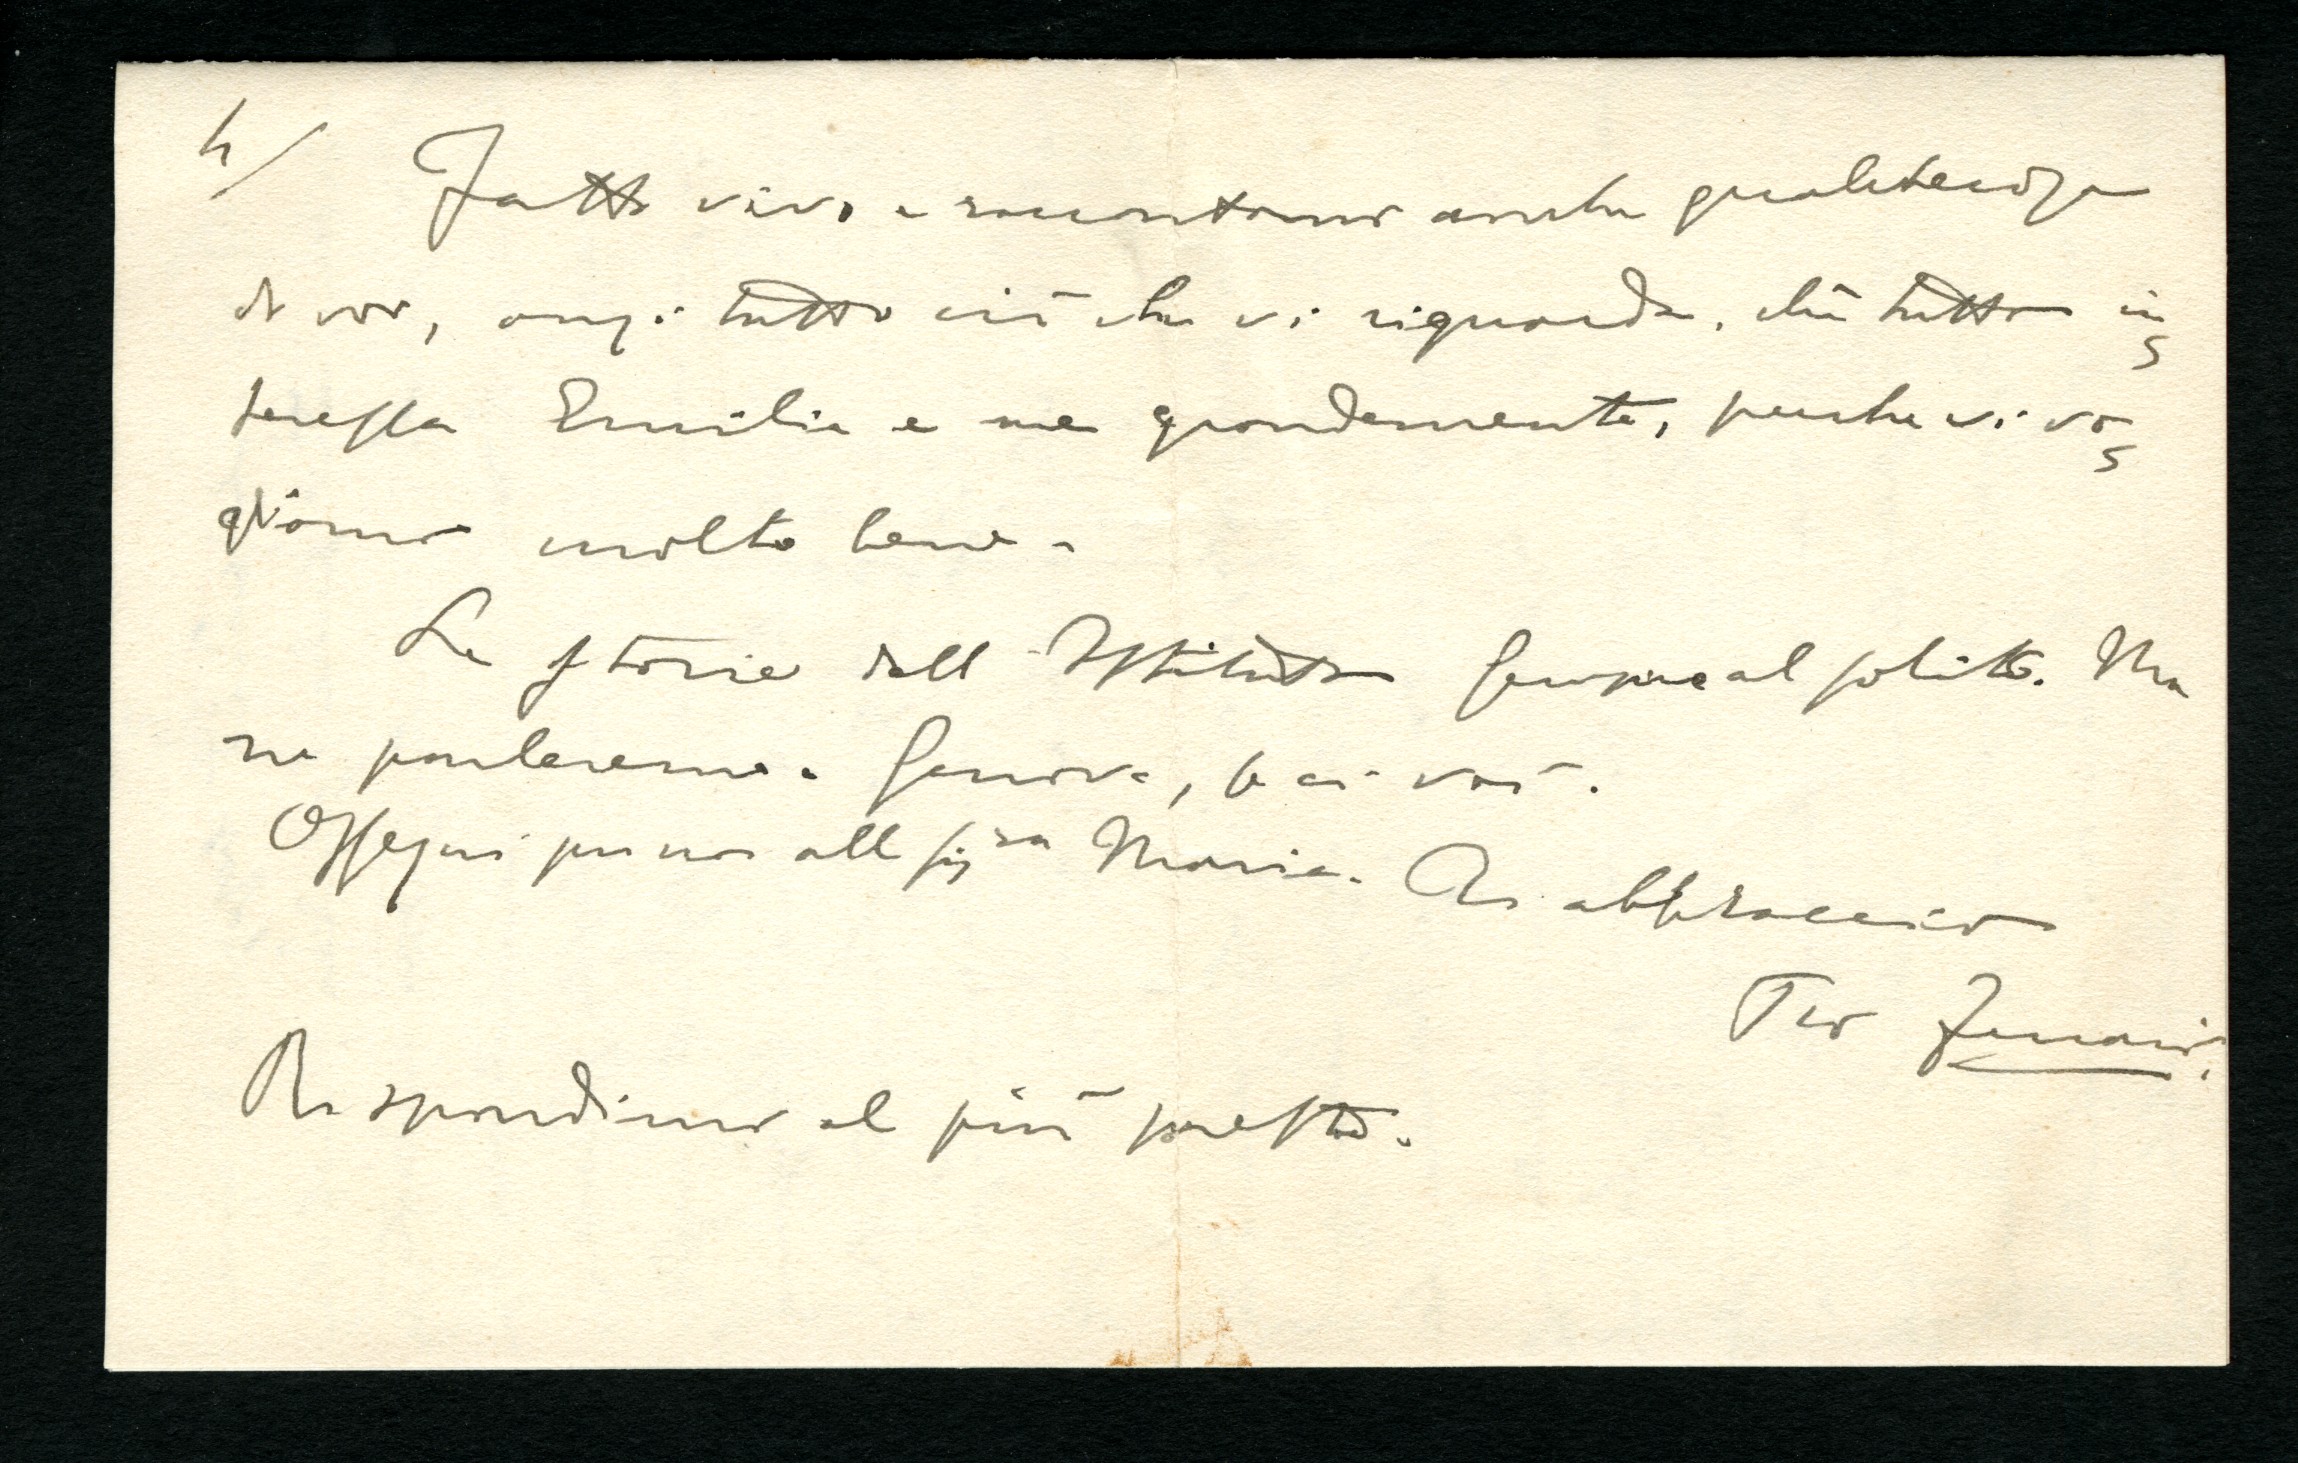 4/ Fatti vivo e raccontami anche qualche cosa
di voi, anzi tutto ciò che vi riguarda, chè tutto in=
teressa Emilia e me grandemente, perche vi vo=
gliamo molto bene.
La storia dell Istituto sempre al solito. Ma
ne parleremo a Genova, se ci vai.
Ossequi pure alla sigra Maria. Ti abbraccio
Tuo
Rispondimi al più presto.